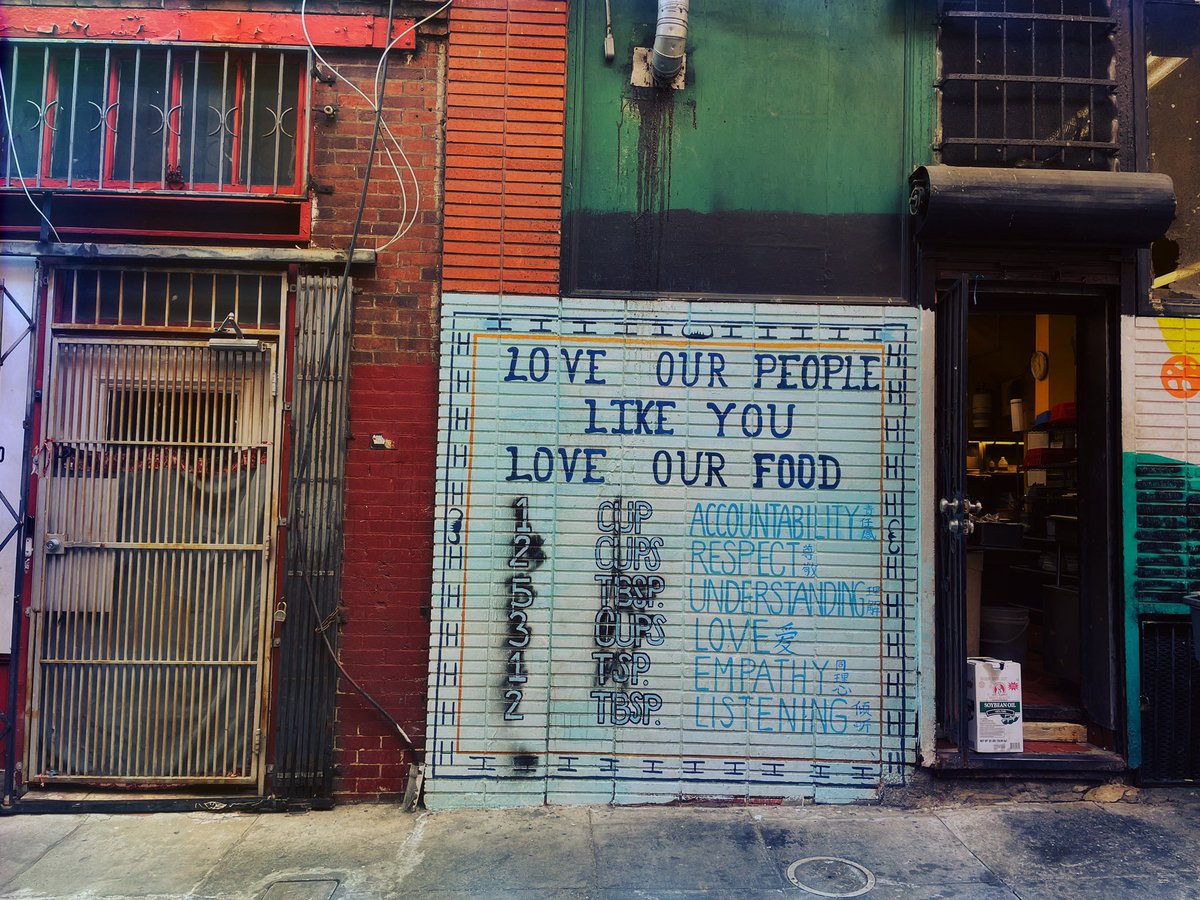 LOVE OUR PEOPLE
LIKE YOU
LOVE OUR FOOD
1 CUP ACCOUNTABILITY 責任感
2 CUPS RESPECT 尊敬
5 TBSP. UNDERSTANDING 理解
3 CUPS LOVE 愛
1 TSP. EMPATHY 同理心
2 TBSP. LISTENING 傾听
SOYBEAN OIL